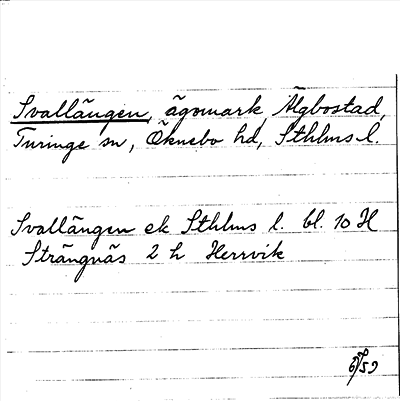 Svallängen, ägomark, Älgbostad,
Turinge sn, Öknebo hd, Sthlms l.
Svallängen ek Sthlms l. bl. 10 H
Strängnäs 2 h Herrvik